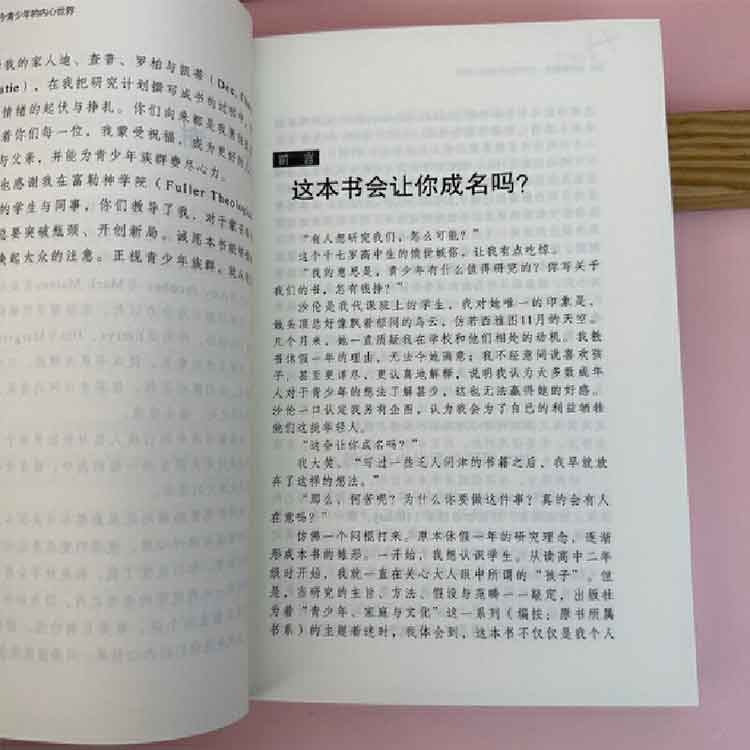 今青少年的内心世界
我的家人迪、查普、罗柏与凯蒂(Dee,
atie),在我把研究计划撰写成书的过程中,
情绪的起伏与挣扎。你们向来都是我
着你们每一位,我蒙受祝福,成为更好的
与父亲,并能为青少年族群费尽心力。
也感谢我在富勒神学院(Fuller Theological
的学生与同事,你们教导了我,对于
要突破瓶颈、开创新局。诚愿本书能够
唤起大众的注意。正视青少年族群,
前言
这本书会让你成名吗?
“有人想研究我们,怎么可能?”
这个十七岁高中生的愤世嫉俗,让我有点吃惊。
“我的意思是,青少年有什么值得研究的?你写关于
我们的书,怎有钱挣?”
沙伦是我代课班上的学生,我对她唯一的印象是,
她头顶总好像飘着郁闷的乌云,仿若西雅图11月的天空。
几个月来,她一直质疑我在学校和他们相处的动机。我教
书休假一年的理由,无法令她满意;我不经意间说喜欢孩
子,甚至更详尽、更认真地解释,说明我认为大多数成年
人对于青少年的想法了解甚少,这也无法赢得她的好感。
沙伦一口认定我另有企图,认为我会为了自己的利益牺牲
他们这挑年轻人。
“这会让你成名吗?”
我大笑。“写过一些乏人问津的书籍之后,我早就放
弃了这样的想法。”
“那么,何苦呢?为什么你要做这件事?真的会有人
在意吗?”
仿佛一个闷棍打来。原本休假一年的研究理念,逐渐
形成本书的雏形。一开始,我想认识学生。从读高中二年
级时开始,我就一直在关心大人眼中所谓的“孩子”。但
是,当研究的主旨、方法、假设与范畴一一敲定,出版社
为着“青少年、家庭与文化”这一系列(编按:原书所属
书系)的主题着迷时,我体会到,这本书不仅仅是我个人